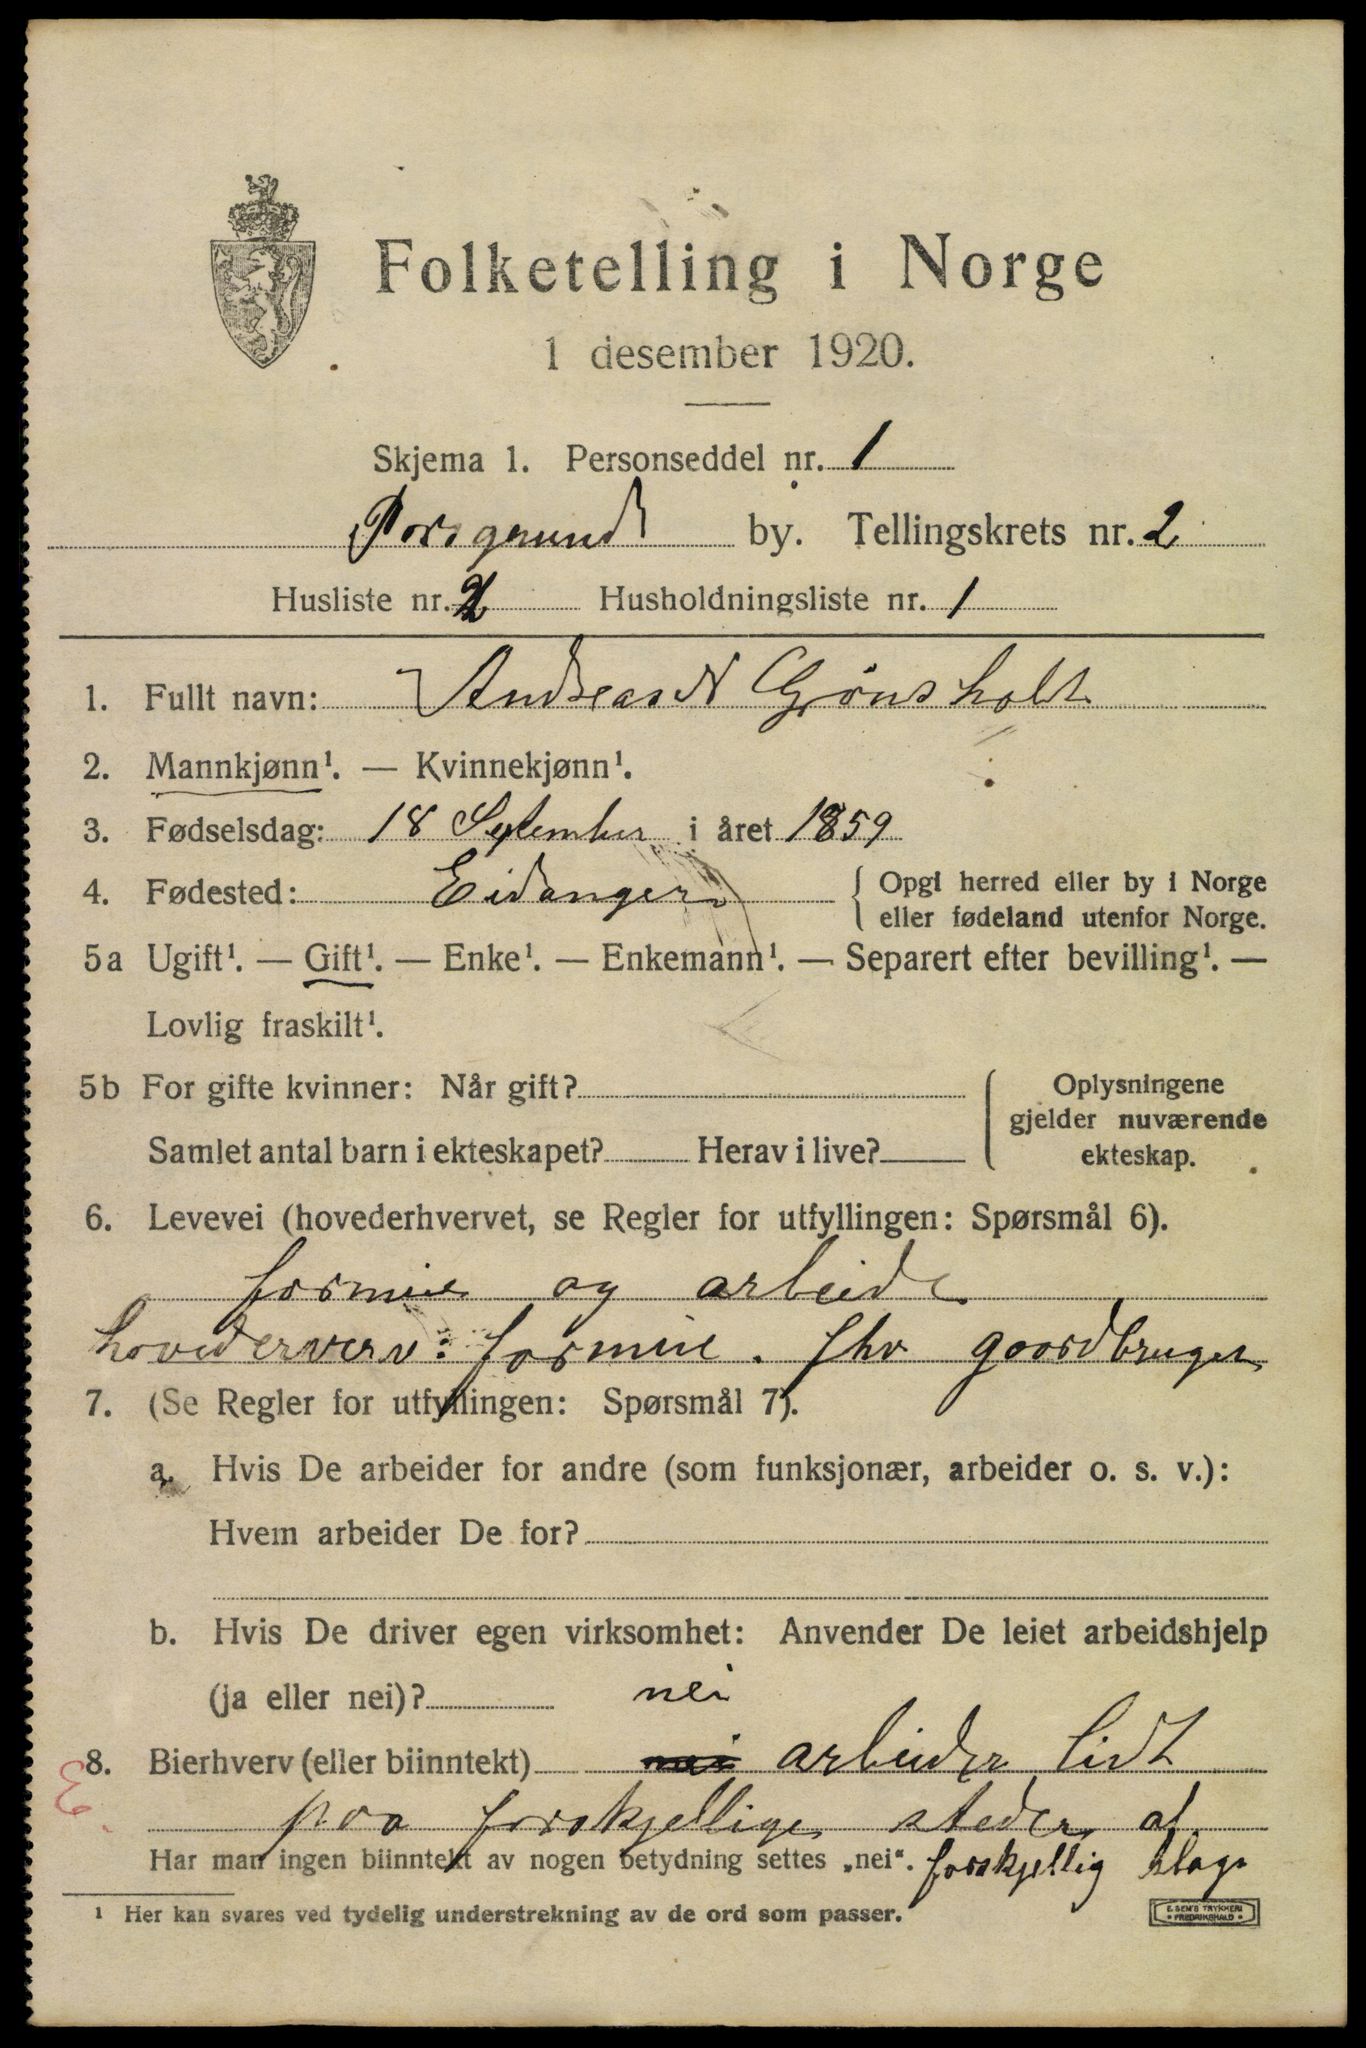 Folketelling i Norge
1 desember 1920.
Skjema 1. Personseddel nr. 1
Porsgrund by. Tellingskrets nr. 2
Husliste nr. 2 Husholdningsliste nr. 1
1. Fullt navn: Andreas N Grønsholt
2. Mannkjønn¹. — Kvinnekjønn¹.
3. Fødselsdag: 18 September i året 1859
4. Fødested: Eidanger { Opgi herred eller by i Norge
eller fødeland utenfor Norge.
5a Ugift¹. — Gift¹. — Enke¹. — Enkemann¹. — Separert efter bevilling¹. —
Lovlig fraskilt¹.
5b For gifte kvinner: Når gift? { Oplysningene
gjelder nuværende
Samlet antal barn i ekteskapet? Herav i live? ekteskap.
6. Levevei (hovederhvervet, se Regler for utfyllingen: Spørsmål 6).
formue og arbeide
hovederverv: formue. fhv gaardbruger
7. (Se Regler for utfyllingen: Spørsmål 7).
a. Hvis De arbeider for andre (som funksjonær, arbeider o. s. v.):
Hvem arbeider De for?
b. Hvis De driver egen virksomhet: Anvender De leiet arbeidshjelp
(ja eller nei)? nei
8. Bierhverv (eller biinntekt) nei arbeider lidt
paa forskjellige steder af
Har man ingen biinntekt av nogen betydning settes „nei“. forskjellig slags
¹ Her kan svares ved tydelig understrekning av de ord som passer.
E. SEM'S TRYKKERI
FREDRIKSHALD